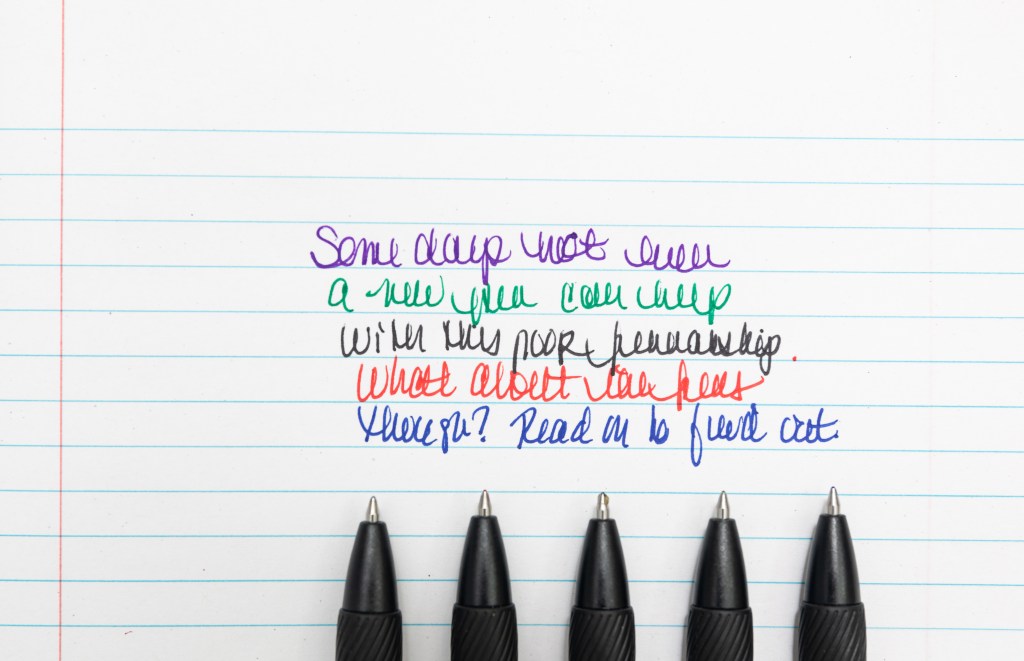 Some days not even
a new pen can help
with this poor penmanship.
What about pens
though? Read on to find out.